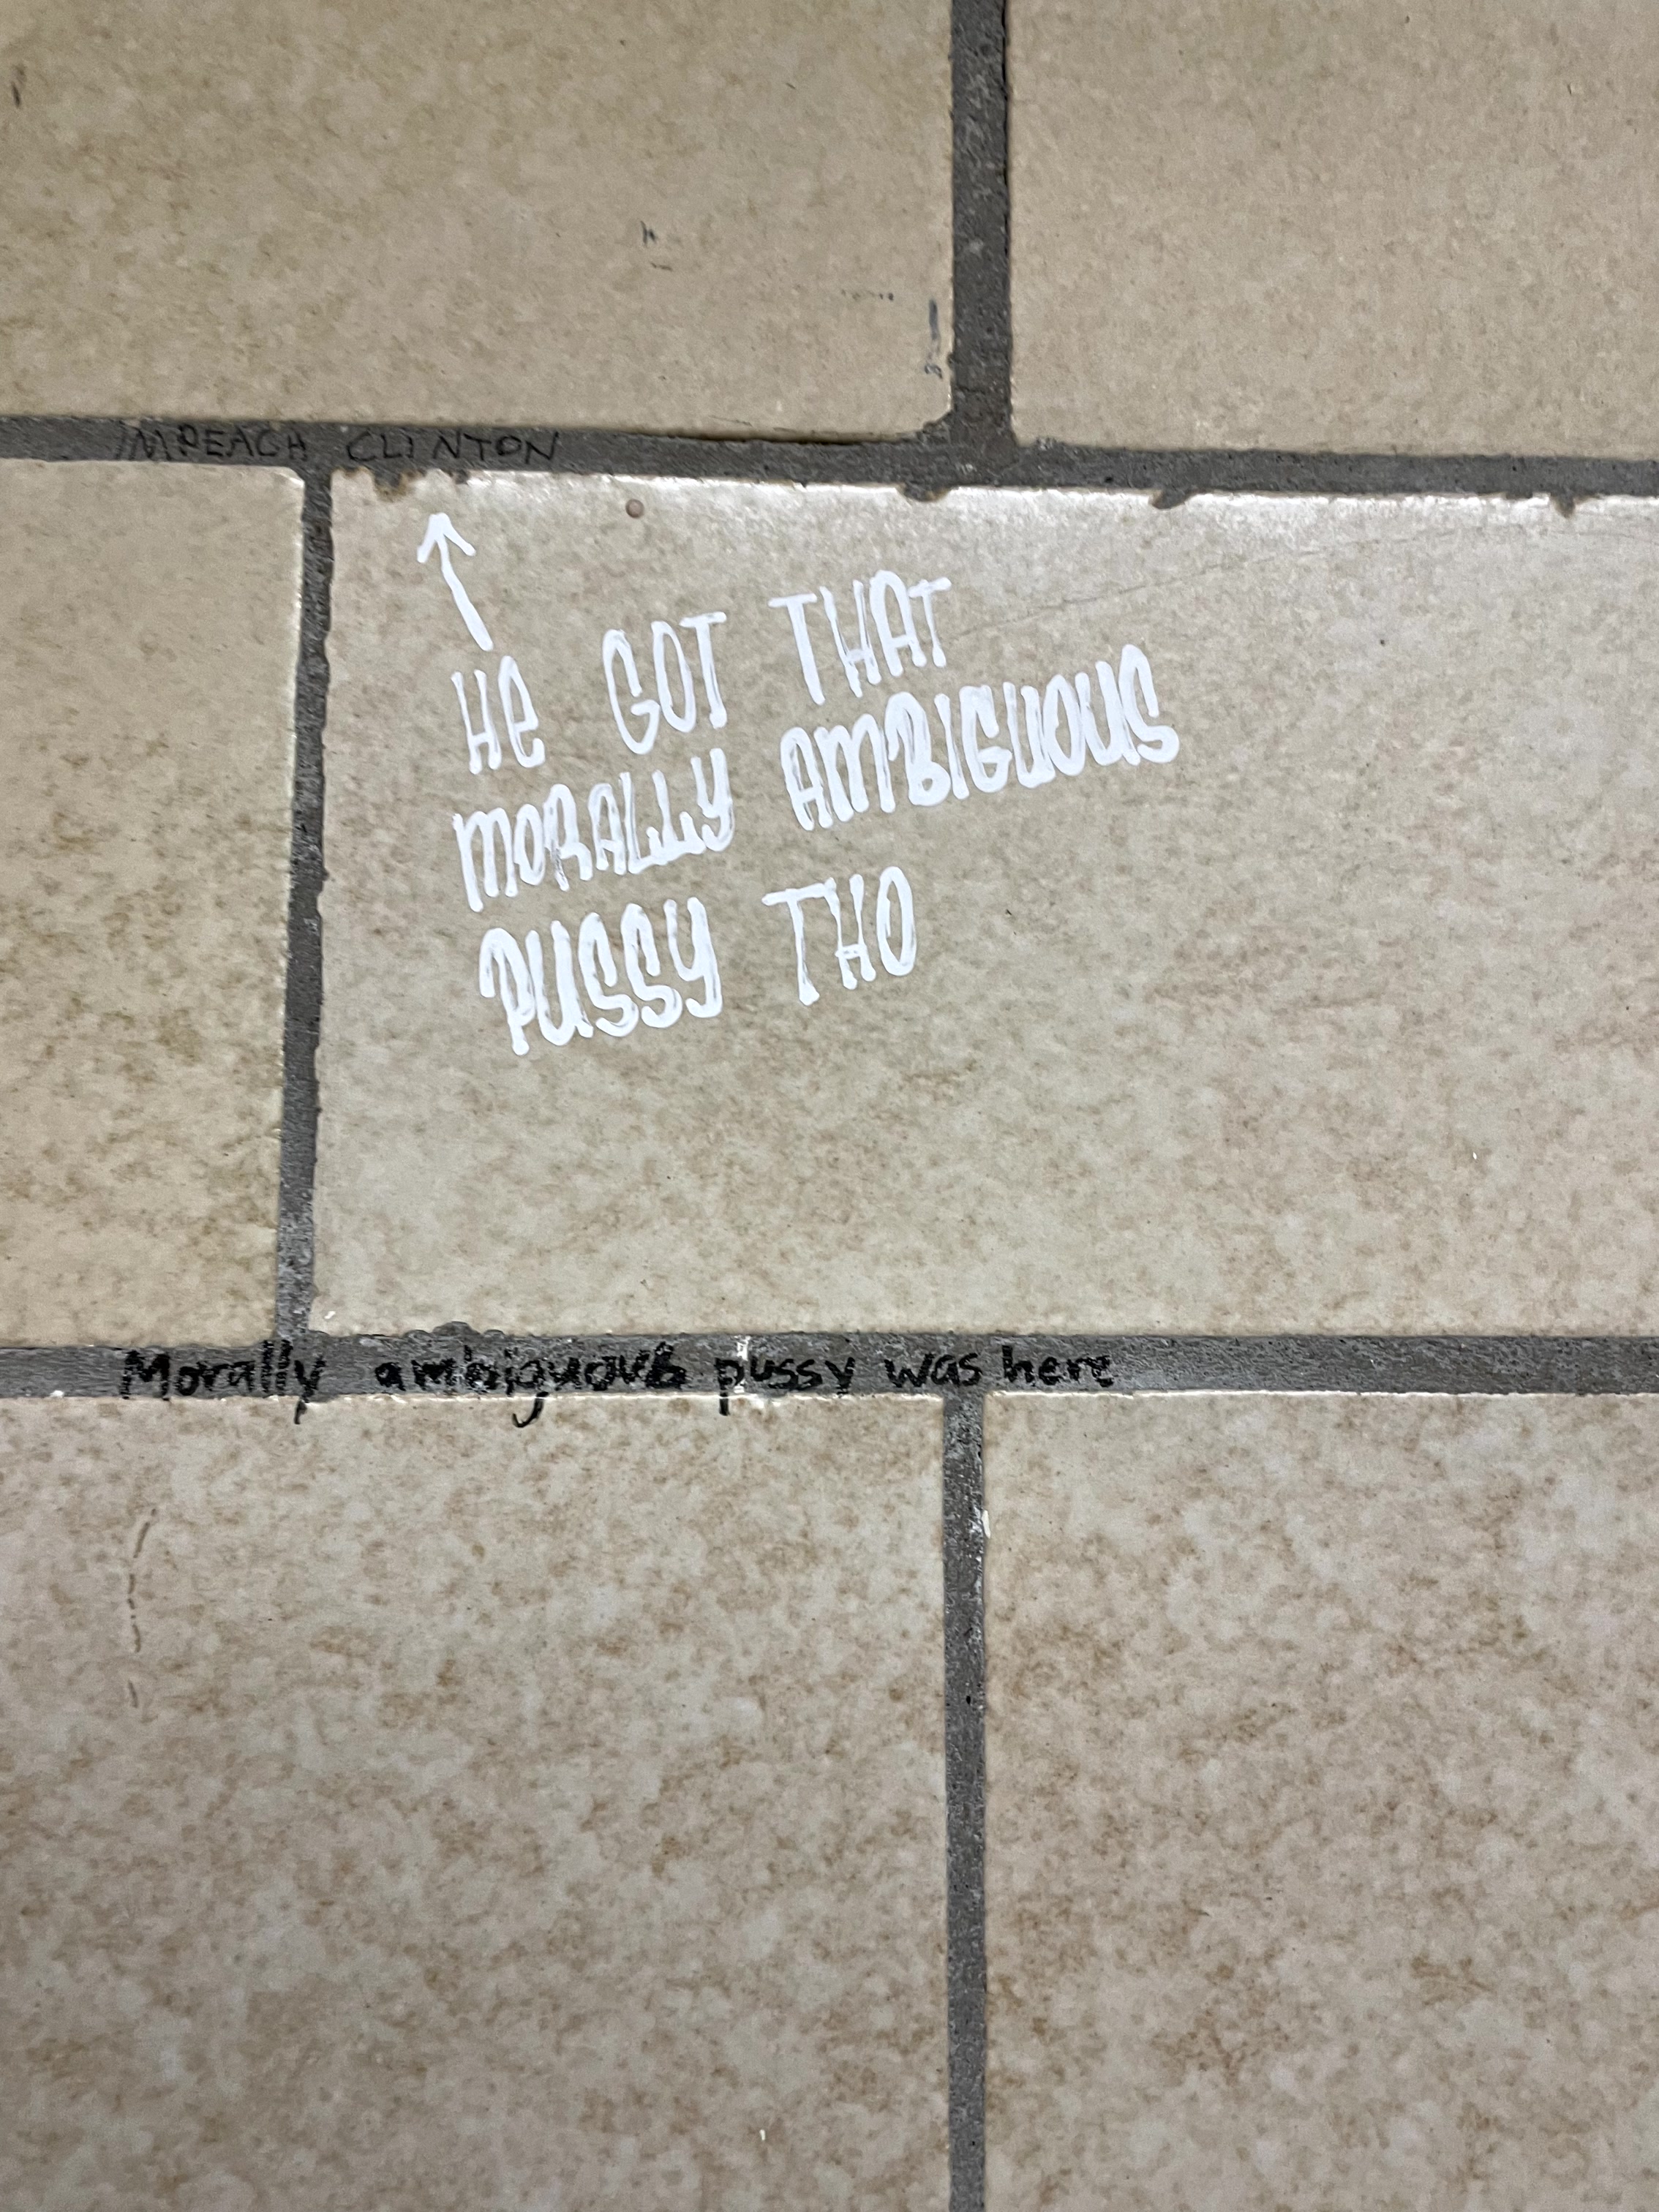 IMPEACH CLINTON
HE GOT THAT
MORALLY AMBIGUOUS
PUSSY THO
Morally ambiguous pussy was here